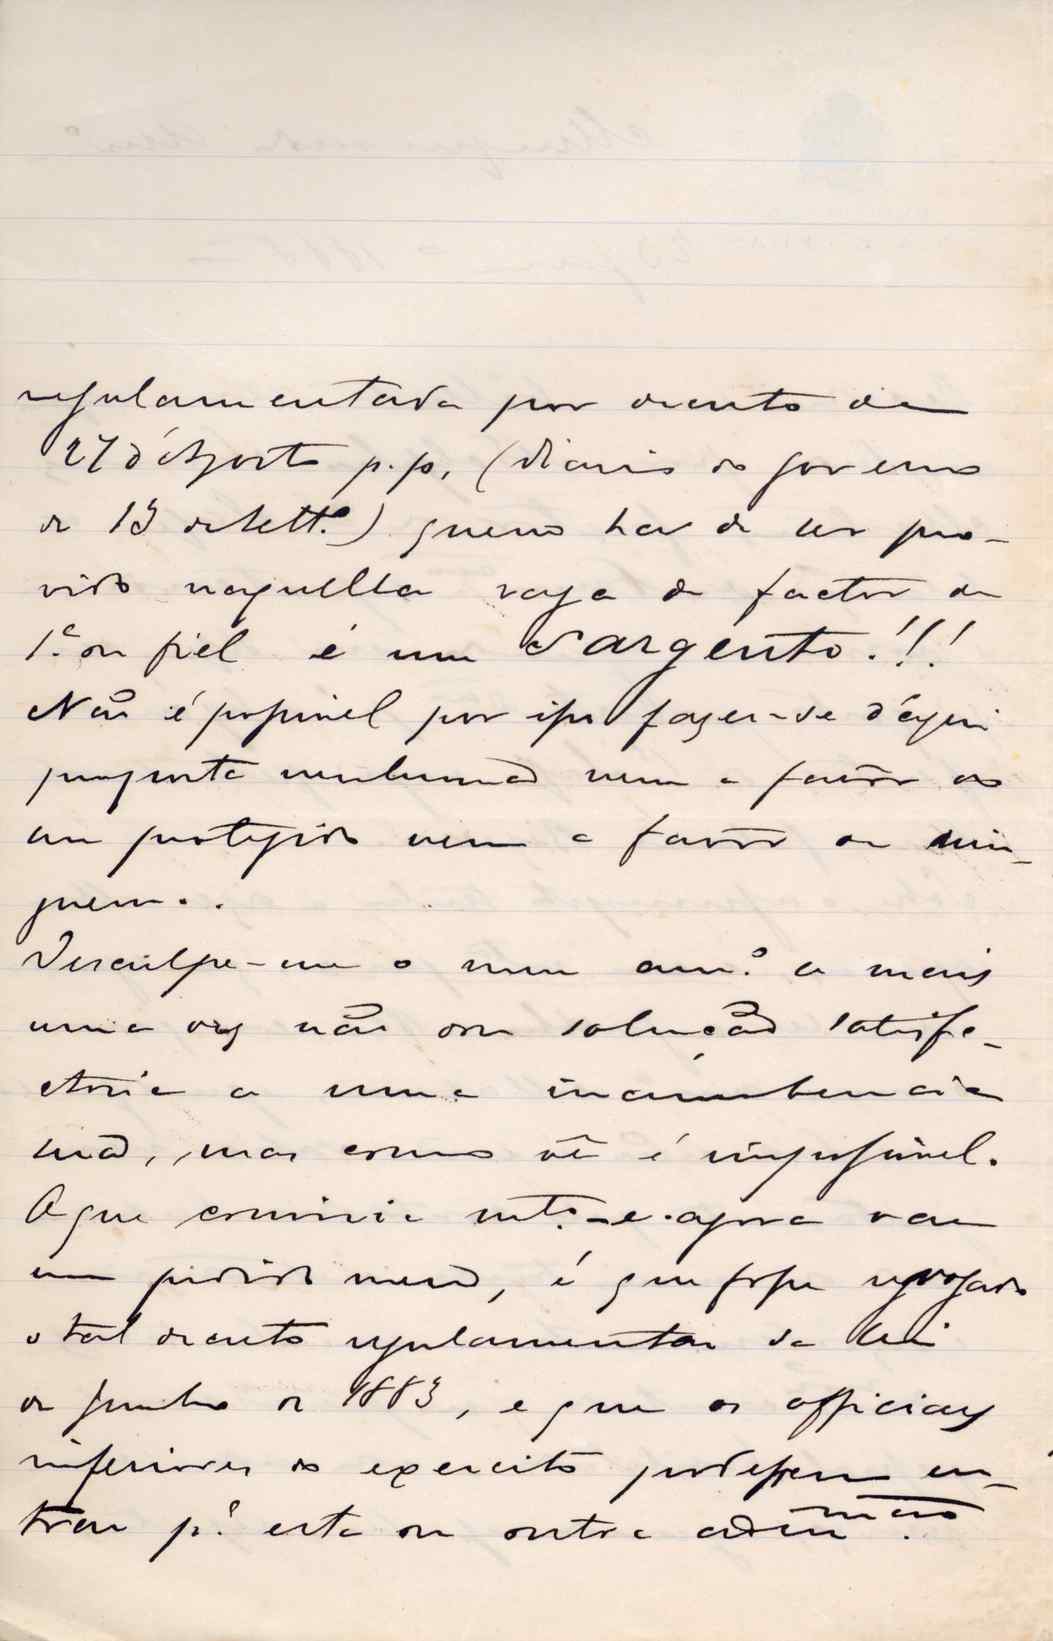 regulamentada por decreto de
27 d'Agosto p.p. (Diario do governo
de 13 de Sett.º) quem ha de ser pro-
vido naquella vaga de factor de
1.ª ou fiel é um Sargento!!!
Não é possivel por isso fazer-se d'aqui
proposta nenhuma nem a favor do
seu protegido nem a favor de nin-
guem..
Desculpe-me o meu am.º a mais
uma vez não dar solução satisfa-
ctoria a uma incumbencia
sua, mas como vê é impossivel.
O que convinia mt.º e agora vae
um pedido meu, é que fosse revogado
o tal decreto regulamentar da lei
de Junho de 1883, e que os officiaes
inferiores do exercito podessem en-
trar p.ª esta ou outra adm